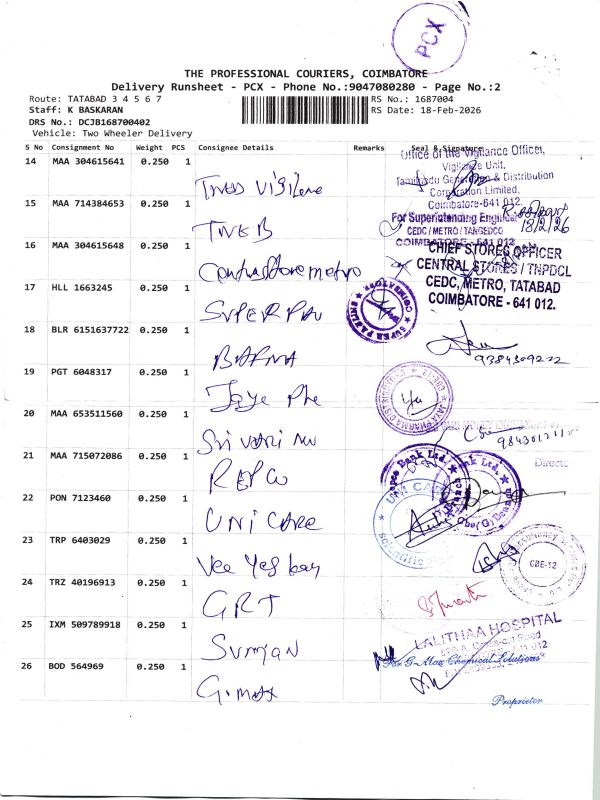 PCX
THE PROFESSIONAL COURIERS, COIMBATORE
Delivery Runsheet - PCX - Phone No.:9047080280 - Page No.:2
Route: TATABAD 3 4 5 6 7
RS No.: 1687004
Staff: K BASKARAN
RS Date: 18-Feb-2026
DRS No.: DCJB168700402
Vehicle: Two Wheeler Delivery
S No Consignment No Weight PCS Consignee Details Remarks Seal & Signature
Office of the Vigilance Officer,
Vigilance Unit,
Tamilnadu Generation & Distribution
Corporation Limited,
Coimbatore-641 012.
14 MAA 304615641 0.250 1 TNEB Vigilance
15 MAA 714384653 0.250 1 TNEB
For Superintending Engineer
18/2/26
CEDC / METRO / TANGEDCO
COIMBATORE - 641 012.
16 MAA 304615648 0.250 1 Central store metro
CHIEF STORES OFFICER
CENTRAL STORES / TNPDCL
CEDC, METRO, TATABAD
COIMBATORE - 641 012.
17 HLL 1663245 0.250 1 SUPER PAN
COIMBATORE
18 BLR 6151637722 0.250 1 BARNA
9384309222
19 PGT 6048317 0.250 1 Jaye Phe
20 MAA 653511560 0.250 1 Sri vari nu
21 MAA 715072086 0.250 1 REPCO
Repco Bank Ltd.
Cbe(G) Branch
Directo
22 PON 7123460 0.250 1 UNI CARE
UNI CARE
Scientific
23 TRP 6403029 0.250 1 Vee Yes bay
CBE-12
24 TRZ 40196913 0.250 1 GRT
25 IXM 509789918 0.250 1 Sumyan
LALITHAA HOSPITAL
26 BOD 564969 0.250 1 G-max
For G-Max Chemical Solutions
Proprietor